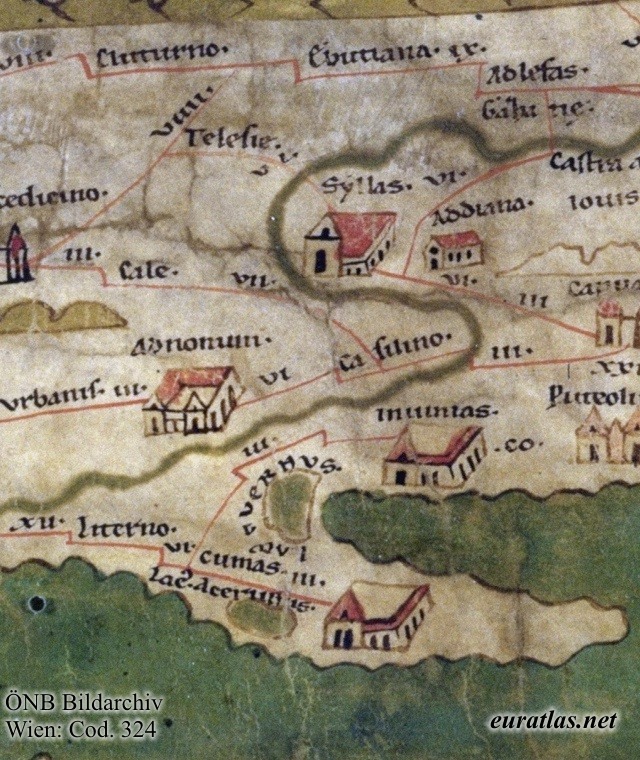 VIII. Cluturno. Ebutiana. IX.
Ad lefas.
VIIII.
Telesie. V
V
Galatie.
Castra a
Syllas. VI.
Iouis
Addiana.
III.
Cale. VII.
VI.
III
Capua
Adnonum.
Ca silino. III.
VI
Urbanis. III.
XXI
Puteoli
Inuinias.
.CO.
III.
AVERNUS.
XII. Literno.
VI. Cumas. III.
Lac. Acerusis.
ÖNB Bildarchiv
Wien: Cod. 324
euratlas.net